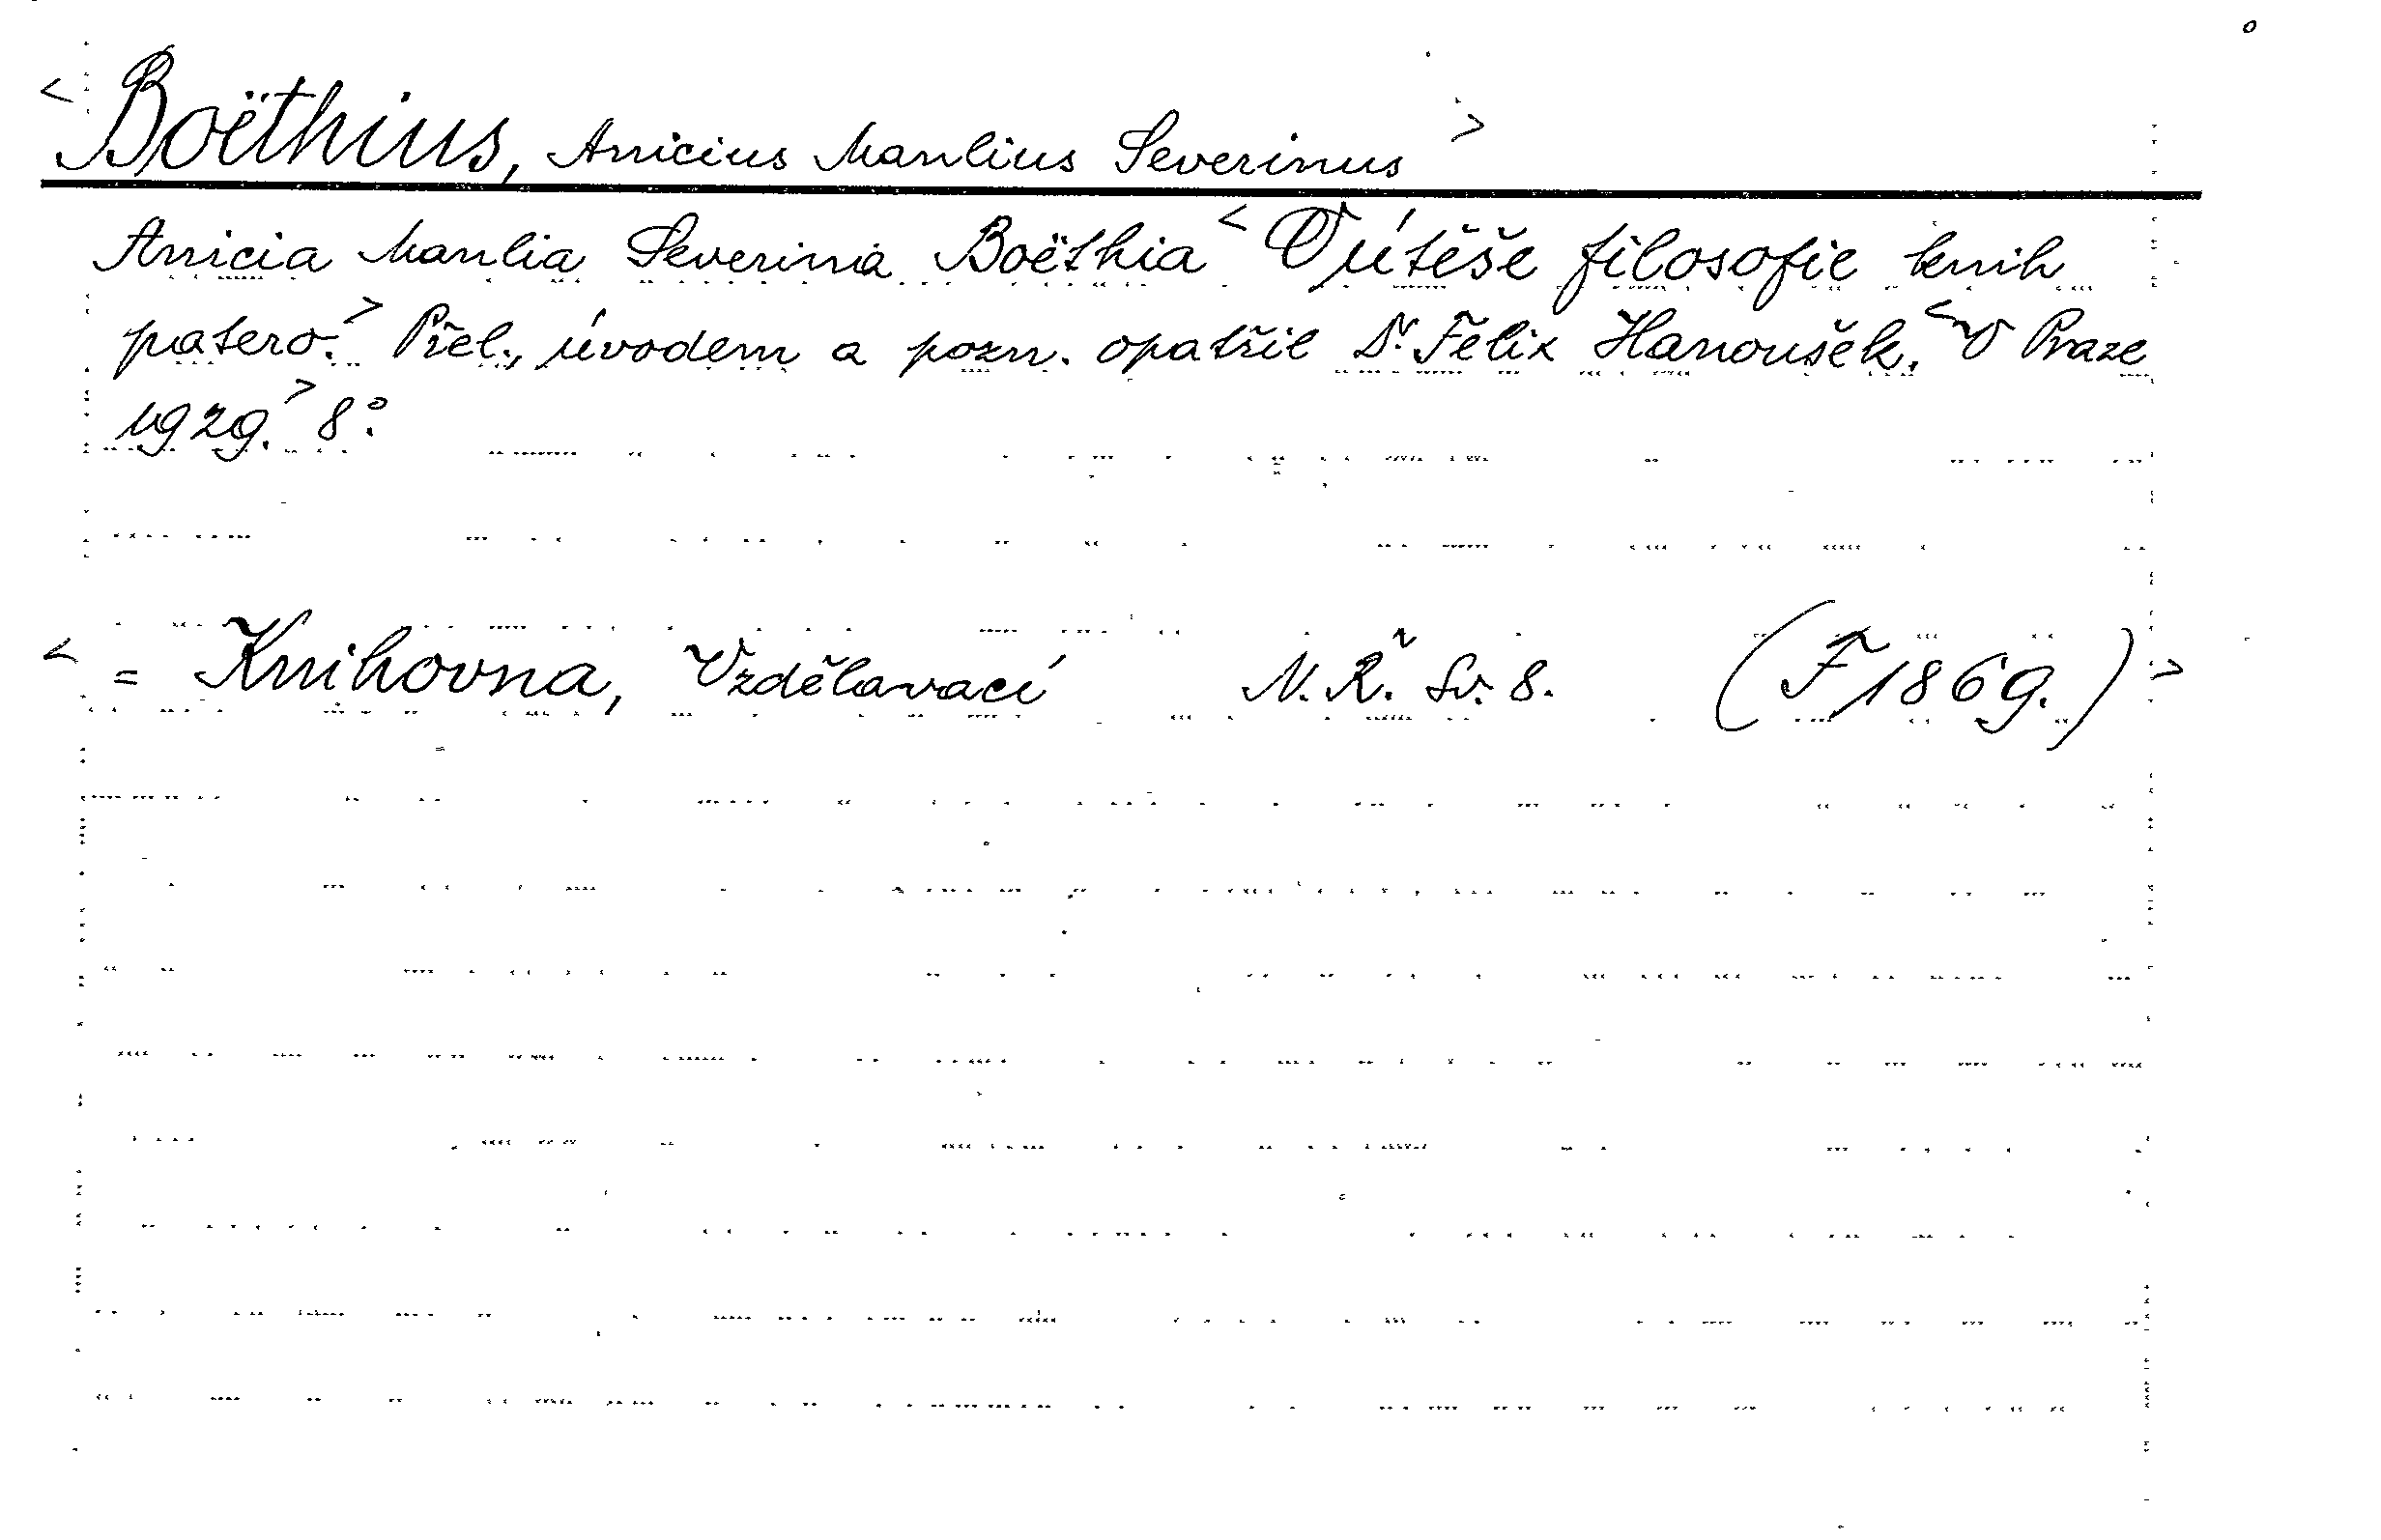 < Boëthius, Anicius Manlius Severinus >
Anicia Manlia Severina Boëthia < O útěše filosofie knih
patero. > Přel., úvodem a pozn. opatřil Dr. Felix Hanoušek. < V Praze
1929. > 8°.
< = Knihovna, Vzdělavací N. Ř. Sv. 8. (F 1869.) >